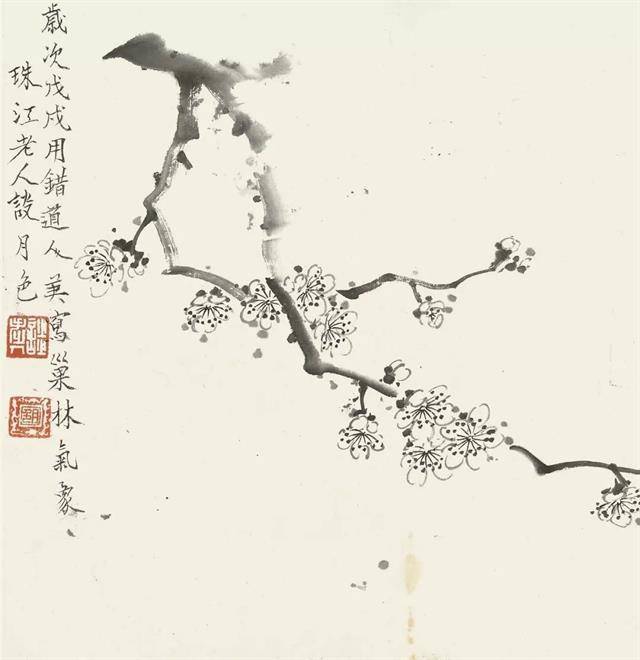 歲次戊戌用錯道人寫巢林氣象
珠江老人談月色